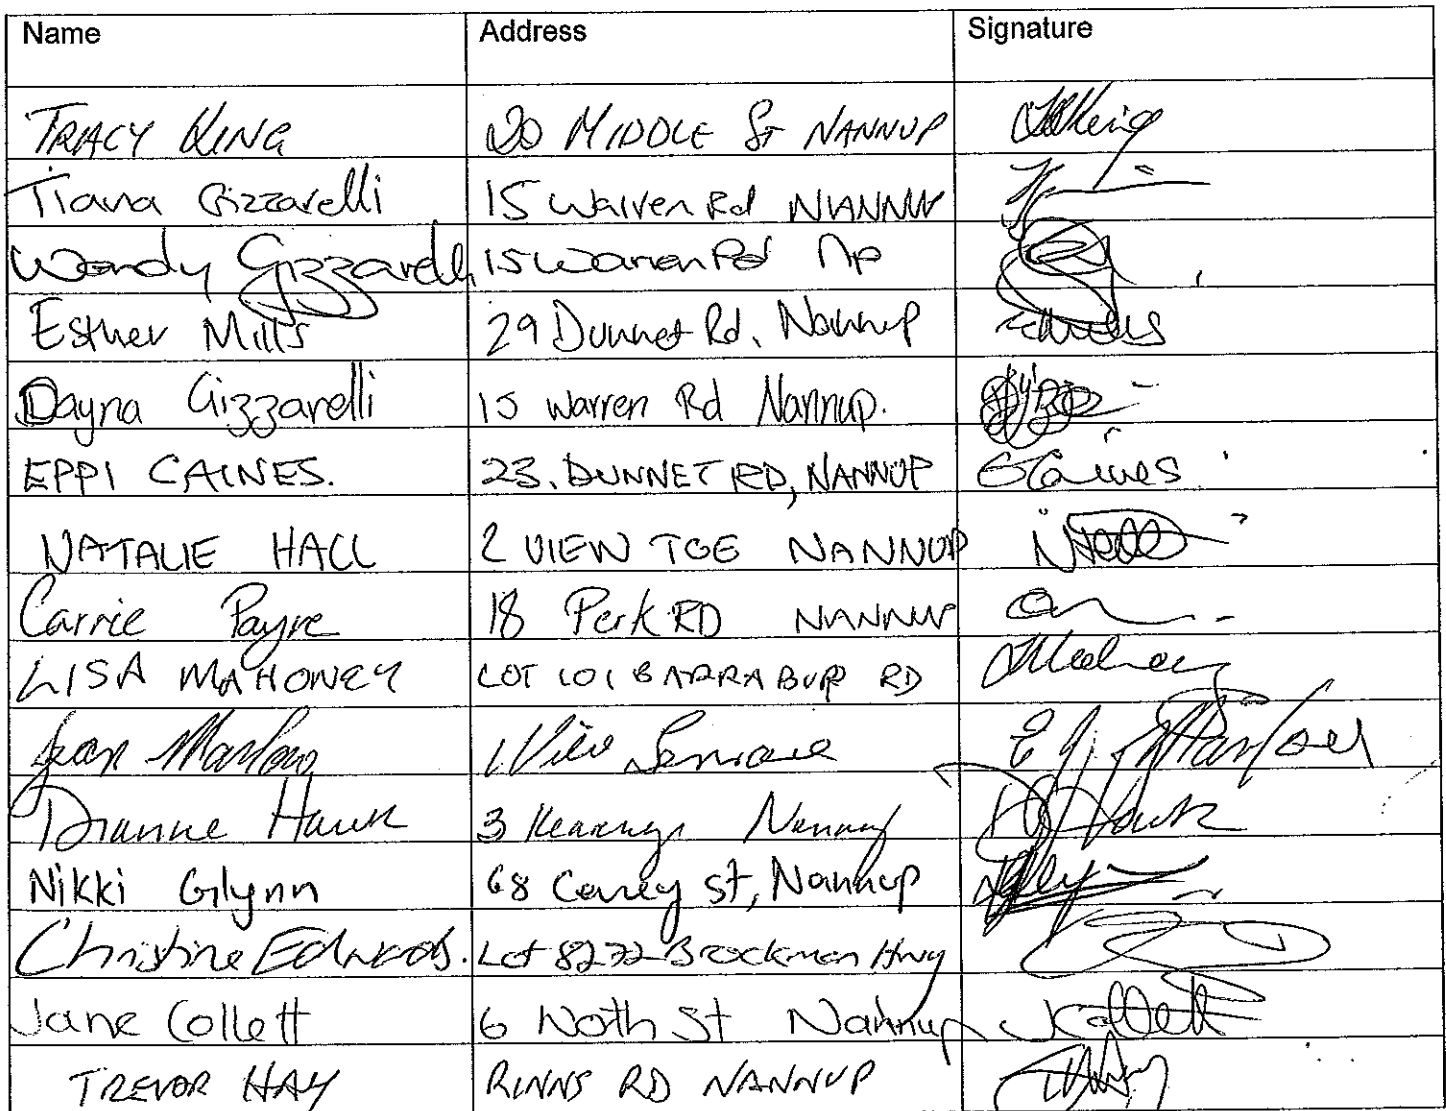 Name Address Signature
TRACY KING 20 MIDDLE ST NANNUP TKing
Tiana Gizzarelli 15 Warren Rd NANNUP
Wendy Gizzarelli 15 Warren Rd Np
Esther Mills 29 Dunnet Rd, Nannup EMills
Dayna Gizzarelli 15 Warren Rd Nannup.
EPPI CAINES. 23. DUNNET RD, NANNUP ECaines
NATALIE HALL 2 VIEW TCE NANNUP NHall
Carrie Payne 18 Perk RD NANNUP
LISA MAHONEY LOT 101 BARRABUP RD LMahoney
Jean Marlow 1 View Terrace E J Marlow
Dianne Hawk 3 Nannup D Hawk
Nikki Glynn 68 Carey St, Nannup
Christine Edwards. Lot 8272 Brockman Hwy
Jane Collett 6 North St Nannup JCollett
TREVOR HAY RINNS RD NANNUP